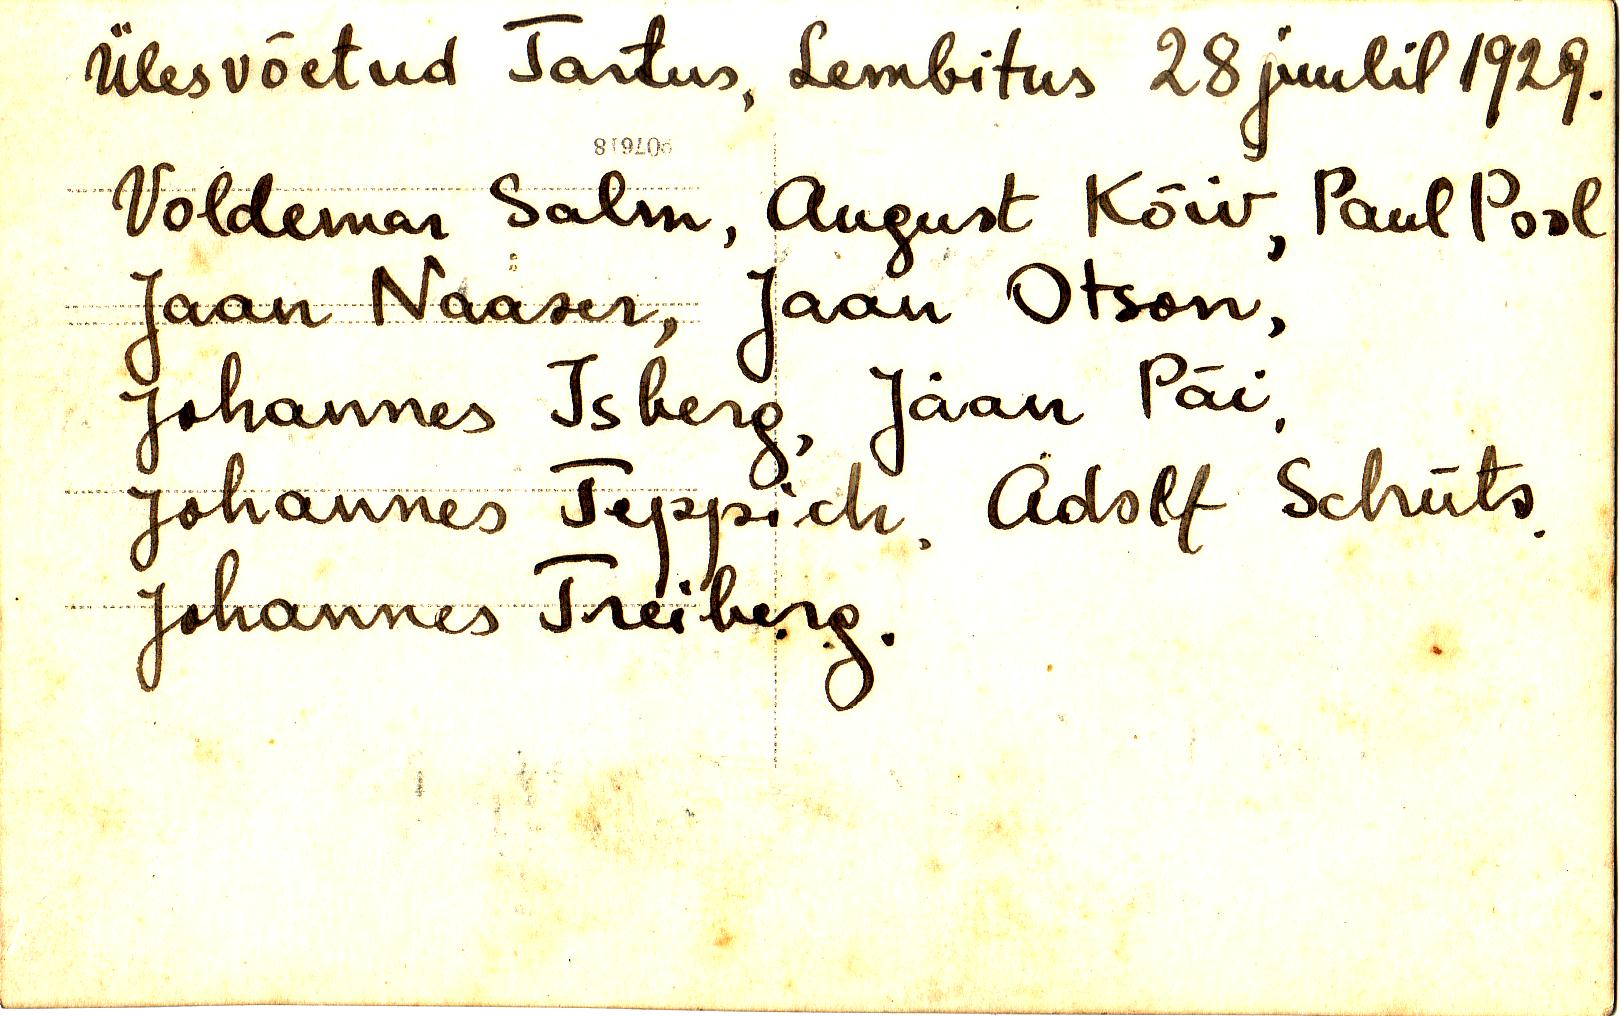 Ülesvõetud Tartus, Lembitus 28 juulil 1929.
Voldemar Salm, August Kõiv, Paul Pool
Jaan Naaser, Jaan Otson,
Johannes Isberg, Jaan Päi,
Johannes Teppich, Adolf Schüts.
Johannes Treiberg.